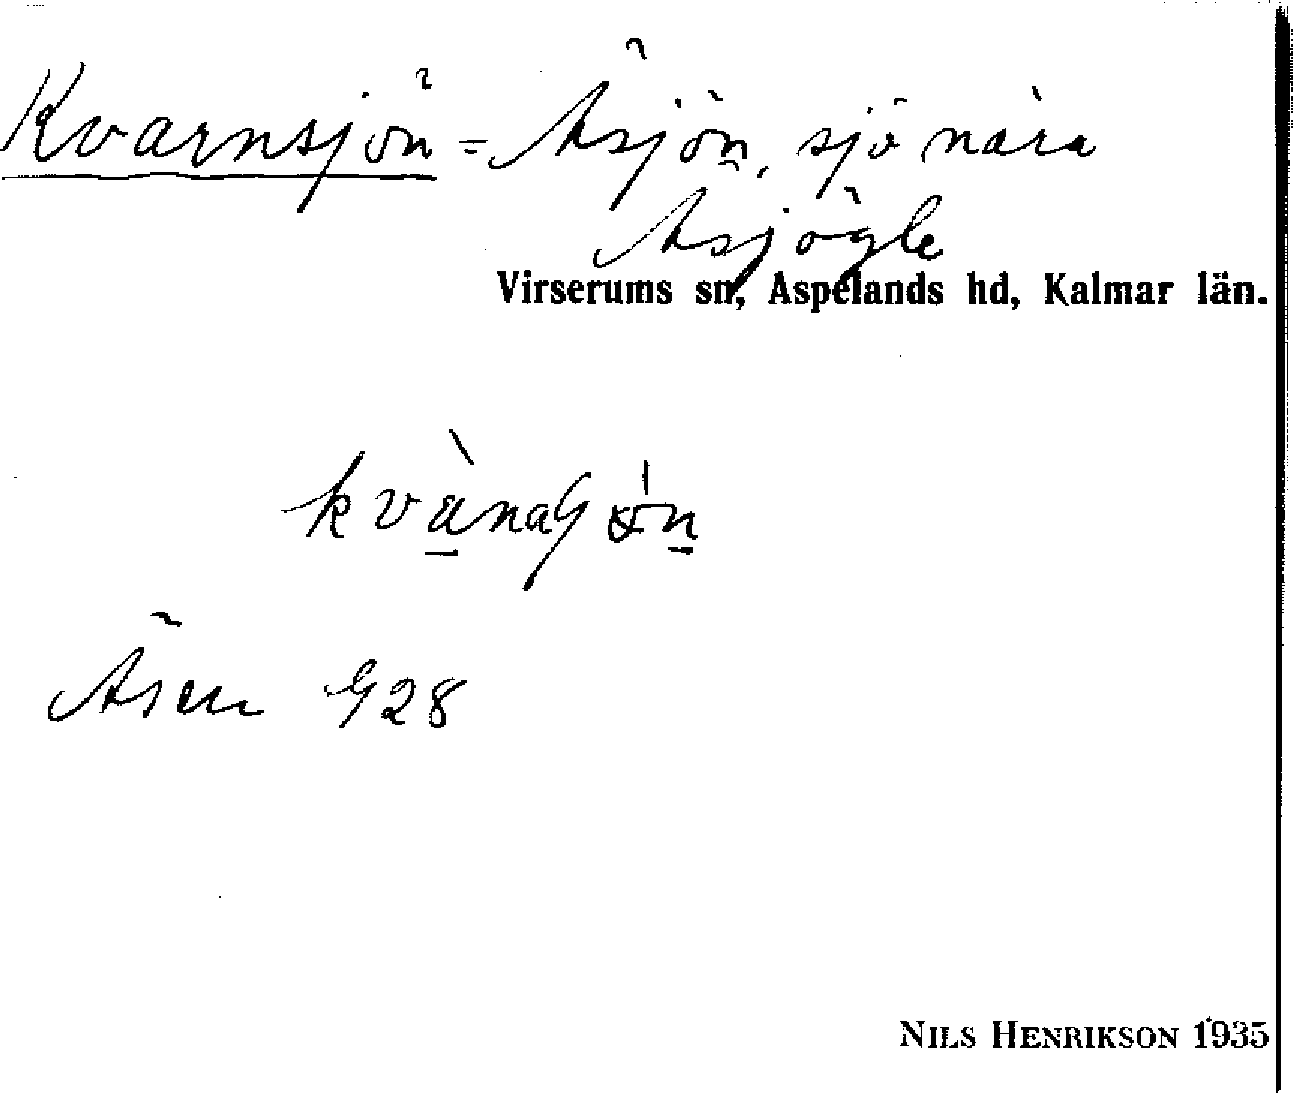 Kvarnsjön = Åsjön, sjö nära
Åsjögle
Virserums sn, Aspelands hd, Kalmar län.
Åsen 928
NILS HENRIKSON 1935